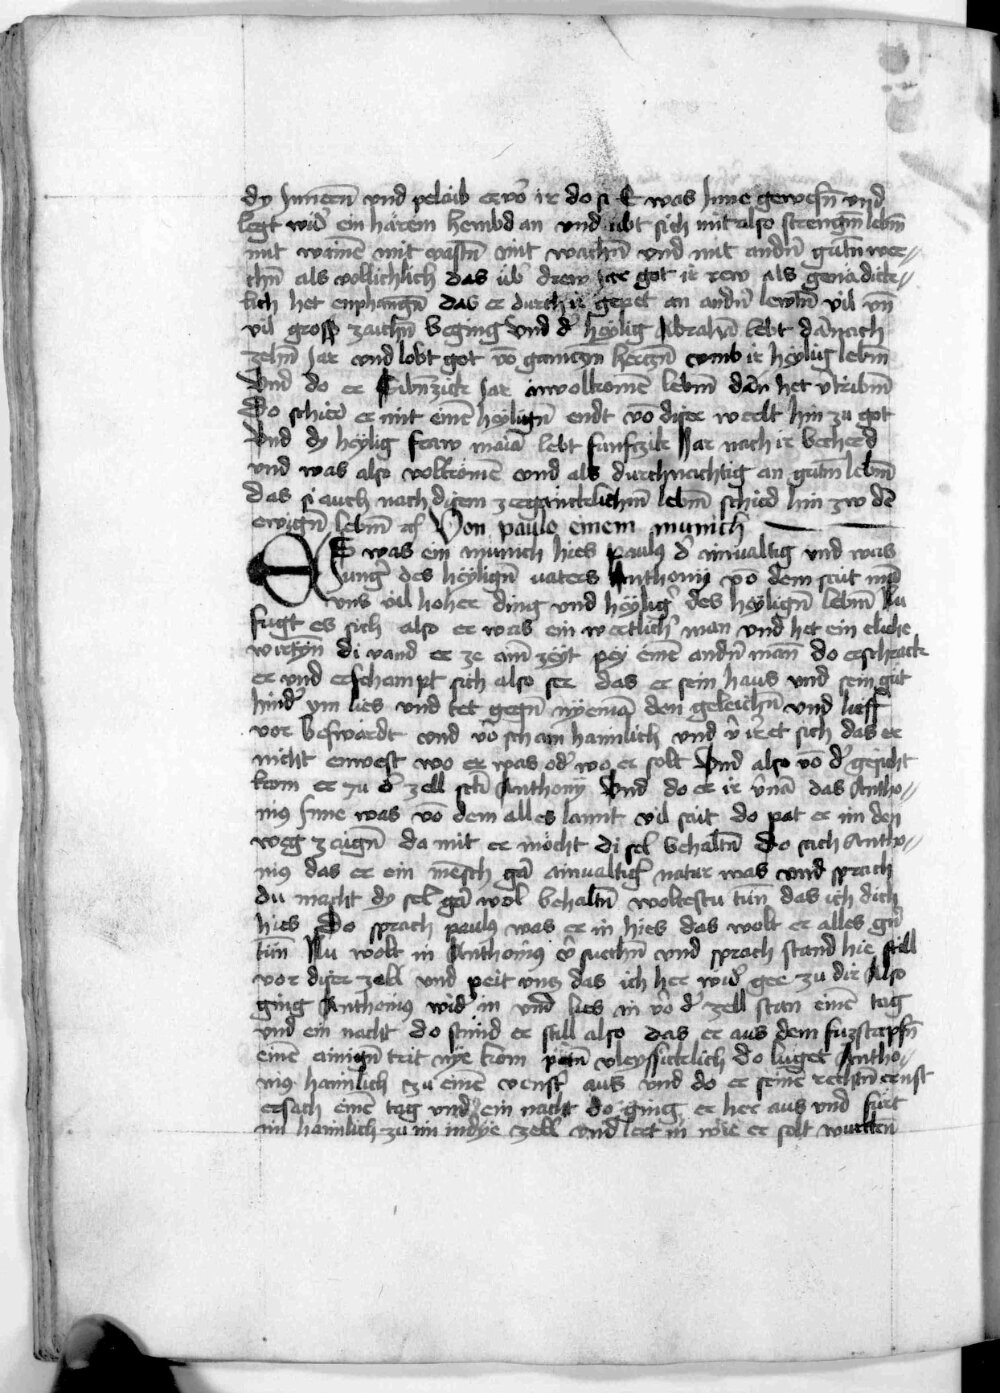 dy Innern̄ vnd pelaib er vor ir do si E was Inne gewesn̄ vnd
legt wid᷑ ein härem hembd an vnd übt sich mit also strengm̄ lebm̄
mit wainē mit vastn̄ mit wachn̄ vnd mit andn̄ gůtn̄ wer-
chn̄ als vollichlich das üb᷑ drew iar got ir rew als genädick-
lich het enphangn̄ das er durch ir gepet an andn̄ lewtn̄ vil vn̄
vil gross zaichn̄ beging Vnd d᷑ heylig Abrahā lebt dārnach
zehn̄ Jar vnd lobt got vō ganczm̄ herczn̄ vmb ir heylig lebm̄
Vnd do er Sibn̄zick Jar in volkomē lebm̄ het v᷑tribm̄
Do schied er mit einē heylign̄ endt vō diser werlt hin zu got
Vnd dy heylig fraw maria lebt funfczik Jar nach ir becherd
vnd was also volkomē vnd als durchnachtig an gůtm̄ lebm̄
das si auch nach disem zergäncklichn̄ lebm̄ schied hin zw dē
ewign̄ lebm̄ Von paulo einem munich
ES was ein munich hies paulus d᷑ ainualtig vnd was
Jung᷑ des heylign̄ uaters Anthonij vō dem seit mā
vns vil hoher ding vnd heylig᷑ des heylign̄ lebm̄ Nu
fugt es sich also er was ein werltlich᷑ man vnd het ein eliche
wirtyn̄ di vand er ze aim zeyt pey einē andn̄ man do erschrack
er vnd erschampt sich also ser das er sein haus vnd sein gůt
hind᷑ ym lies vnd tet gegn̄ nyemā den geleichn̄ vnd lieff
vor beswärdt vnd vō scham haimlich vnd v᷑irret sich das er
nicht enwest wo er was od᷑ wo er solt Vnd also vō d᷑ geschicht
kom er zu d᷑ zell sc̄ti Anthony Vnd do er ir v᷑nā das Antho-
nius Inne was vō dem alles lannt vil seit do pat er im den
weg zaign̄ da mit er möcht di sel behaltn̄ do sach Antho-
nius das er ein mēsch gar ainualtig᷑ natur was vnd sprach
du macht dy sel gar wol behaltn̄ woltestu tůn das ich dich
hies Do sprach paulus was er in hies das wolt er alles gern
tůn Nu wolt in Anthonius v᷑suechn̄ vnd sprach stand hie still
vor diser zell vnd peit vncz das ich her wid᷑ gee zu dir Also
ging Anthonius wid᷑ in vnd lies in vō d᷑ zell stan einē tag
vnd ein nacht do stund er still also das er aus dem fuzstapfn̄
einē ainign̄ trit nye kom vleyssicklich do luget Antho-
nius haimlich zu einē venst᷑ aus vnd do er seinē rechtn̄ ernst
ersach einē tag vnd ein nacht do ging er her aus vnd fůrt
in haimlich zu im in dye zell vnd lert in wie er solt wurckn̄